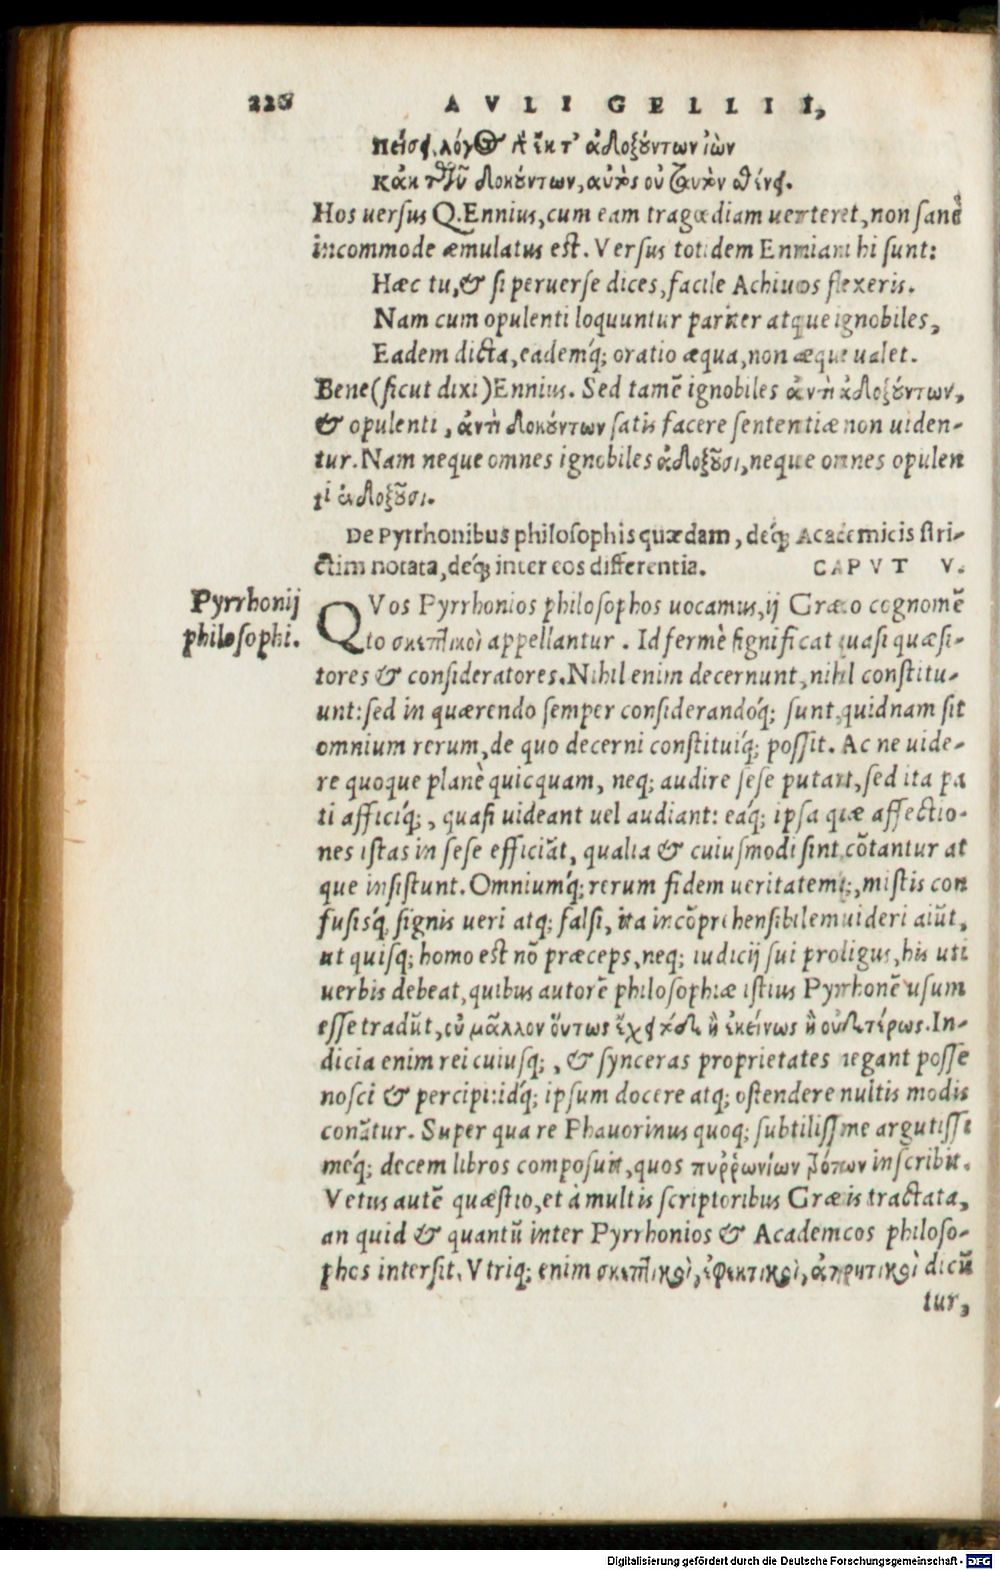 226 AVLI GELLII,
πείσει. λόγος ἔκ τ' ἀδοξούντων ἰὼν
Κἀκ τῶν δοκούντων, αὐτὸς οὐ ταυτὸν σθένει.
Hos uersus Q. Ennius, cum eam tragœdiam uerteret, non sanè
incommode æmulatus est. Versus totidem Enniani hi sunt:
Hæc tu, & si peruerse dices, facile Achiuos flexeris.
Nam cum opulenti loquuntur pariter atque ignobiles,
Eadem dicta, eademq́; oratio æqua, non æque ualet.
Bene (sicut dixi) Ennius. Sed tamē ignobiles ἀντὶ ἀδοξούντων,
& opulenti, ἀντὶ δοκούντων satis facere sententiæ non uiden-
tur. Nam neque omnes ignobiles ἀδοξοῦσι, neque omnes opulen
ti ἀδοξοῦσι.
De Pyrrhonibus philosophis quædam, deq́; Academicis stri-
ctim notata, deq́; inter eos differentia. CAPVT V.
Pyrrhonij
philosophi.
QVos Pyrrhonios philosophos uocamus, ij Græco cognomē
to σκεπτικοὶ appellantur. Id fermè significat quasi quæsi-
tores & consideratores. Nihil enim decernunt, nihil constitu-
unt: sed in quærendo semper considerandoq́; sunt, quidnam sit
omnium rerum, de quo decerni constituiq́; possit. Ac ne uide-
re quoque planè quicquam, neq; audire sese putant, sed ita pa
ti afficiq́;, quasi uideant uel audiant: eaq́; ipsa quæ affectio-
nes istas in sese efficiāt, qualia & cuiusmodi sint, cōtantur at
que insistunt. Omniumq́; rerum fidem ueritatemq́;, mistis con
fusisq́; signis ueri atq; falsi, ita incōprehensibilem uideri aiūt,
ut quisq; homo est nō præceps, neq; iudicij sui prodigus, his uti
uerbis debeat, quibus autorē philosophiæ istius Pyrrhonē usum
esse tradūt, οὐ μᾶλλον ὅντως ἔχει τόδε ἢ ἐκείνως ἢ οὐδετέρως. In-
dicia enim rei cuiusq;, & synceras proprietates negant posse
nosci & percipi: idq́; ipsum docere atq; ostendere multis modis
conātur. Super qua re Phauorinus quoq; subtilissime argutissi
meq́; decem libros composuit, quos πυῤῥωνίων τρόπων inscribit.
Vetus autē quæstio, et à multis scriptoribus Græcis tractata,
an quid & quantū inter Pyrrhonios & Academicos philoso-
phos intersit. Vtriq; enim σκεπτικοὶ, ἐφεκτικοὶ, ἀπορητικοὶ dicū
tur,
Digitalisierung gefördert durch die Deutsche Forschungsgemeinschaft - DFG